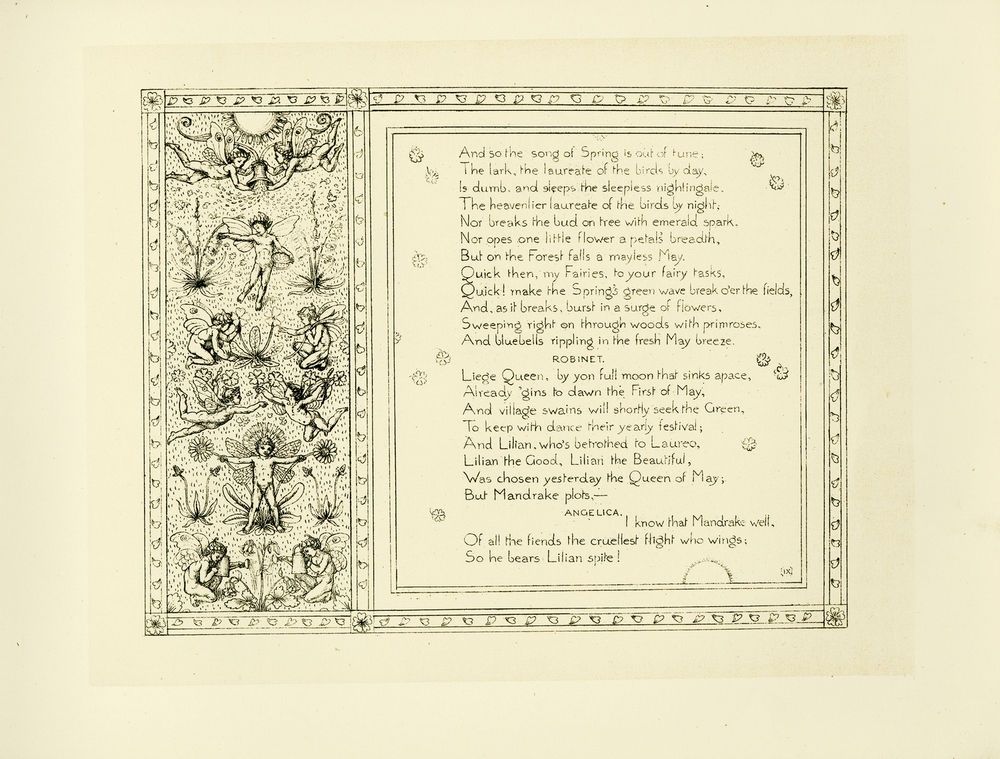 And so the song of Spring is out of tune;
The lark, the laureate of the birds by day,
Is dumb, and sleeps the sleepless nightingale,
The heavenlier laureate of the birds by night;
Nor breaks the bud on tree with emerald spark,
Nor opes one little flower a petal's breadth,
But on the Forest falls a mayless May.
Quick then, my Fairies, to your fairy tasks,
Quick! make the Spring's green wave break o'er the fields,
And, as it breaks, burst in a surge of flowers,
Sweeping right on through woods with primroses,
And bluebells rippling in the fresh May breeze.
ROBINET.
Liege Queen, by yon full moon that sinks apace,
Already 'gins to dawn the First of May,
And village swains will shortly seek the Green,
To keep with dance their yearly festival;
And Lilian, who's betrothed to Laureo,
Lilian the Good, Lilian the Beautiful,
Was chosen yesterday the Queen of May;
But Mandrake plots,—
ANGELICA.
I know that Mandrake well,
Of all the fiends the cruellest flight who wings;
So he bears Lilian spite!
(ix)